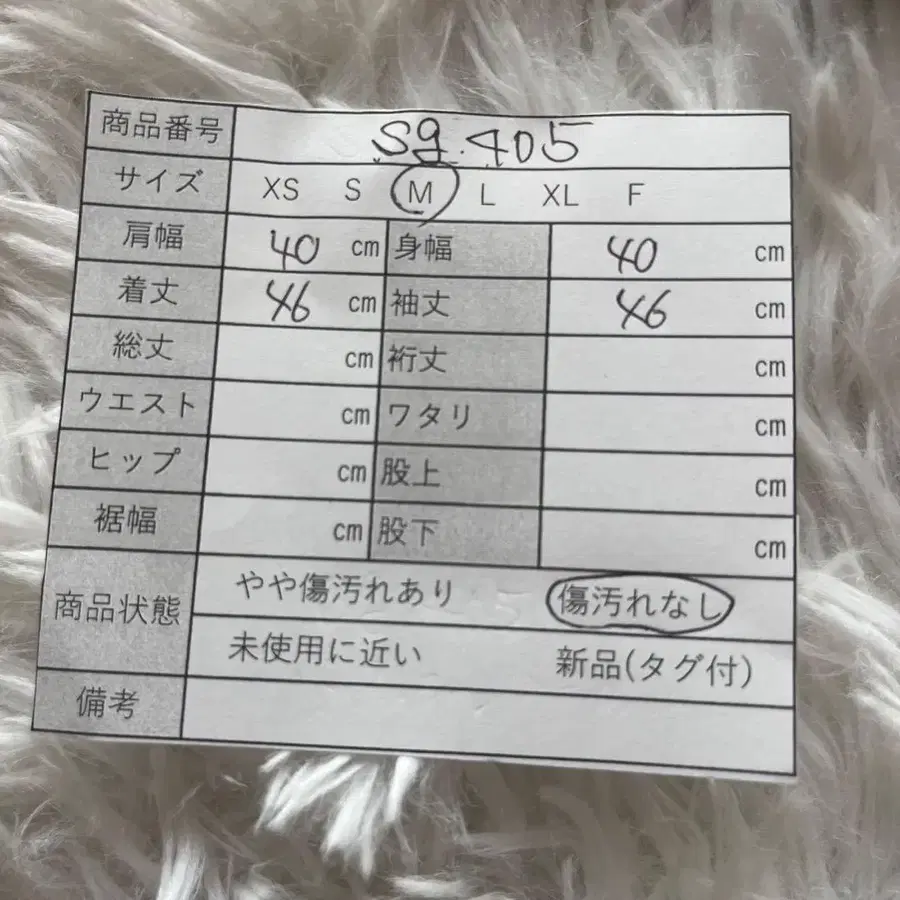 商品番号 sg.405
サイズ XS S M L XL F
肩幅 40 cm 身幅 40 cm
着丈 46 cm 袖丈 46 cm
総丈 cm 裄丈 cm
ウエスト cm ワタリ cm
ヒップ cm 股上 cm
裾幅 cm 股下 cm
商品状態 やや傷汚れあり 傷汚れなし
未使用に近い 新品(タグ付)
備考